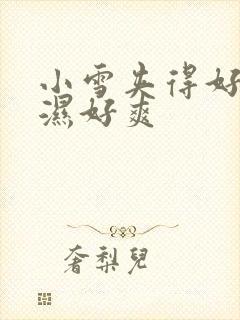 小雪夹得好
濕好爽
奢梨兒